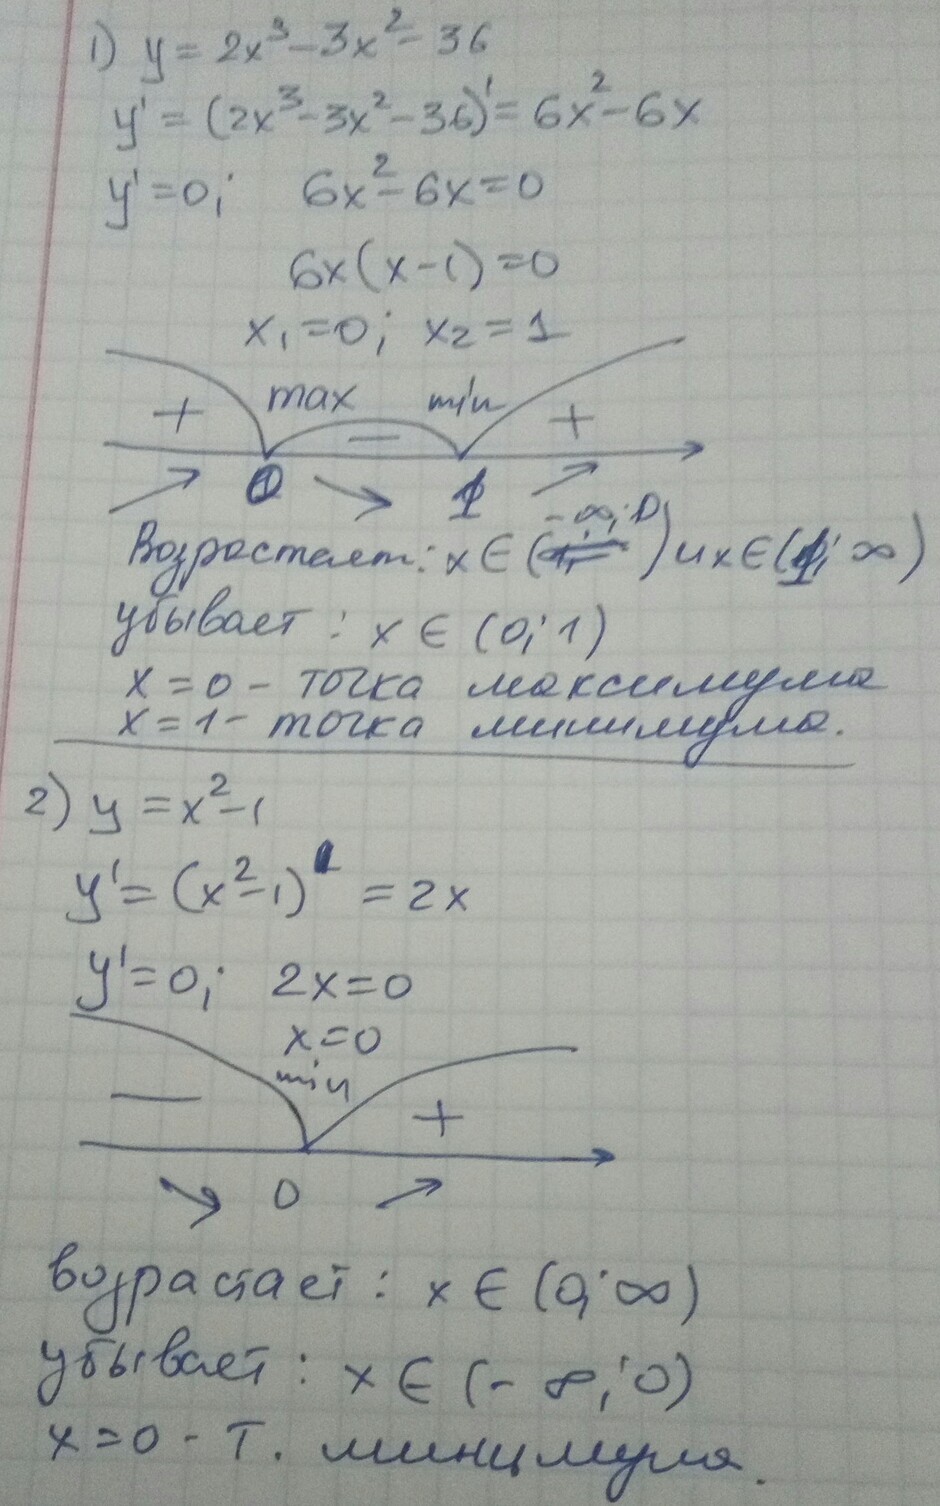 1) y = 2x³ - 3x² - 36
y' = (2x³ - 3x² - 36)' = 6x² - 6x
y' = 0; 6x² - 6x = 0
6x(x - 1) = 0
x₁ = 0; x₂ = 1
+ max − min +
0 1
Возрастает: x ∈ (-∞; 0) и x ∈ (1; ∞)
убывает: x ∈ (0; 1)
x = 0 - точка максимума
x = 1 - точка минимума.
2) y = x² - 1
y' = (x² - 1)' = 2x
y' = 0; 2x = 0
x = 0
min
− +
0
возрастает: x ∈ (0; ∞)
убывает: x ∈ (-∞; 0)
x = 0 - т. минимума.